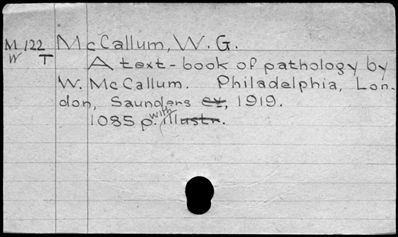 M 122 McCallum, W. G.
W T A text-book of pathology by
W. McCallum. Philadelphia, Lon-
don, Saunders et, 1919.
1085 p. with illustr.